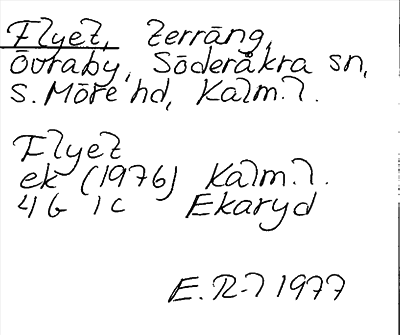 Flyet, terräng,
Övraby, Söderåkra sn,
S. Möre hd, Kalm. l.
Flyet
ek (1976) Kalm. l.
4 G 1 c Ekaryd
E. R-l 1977